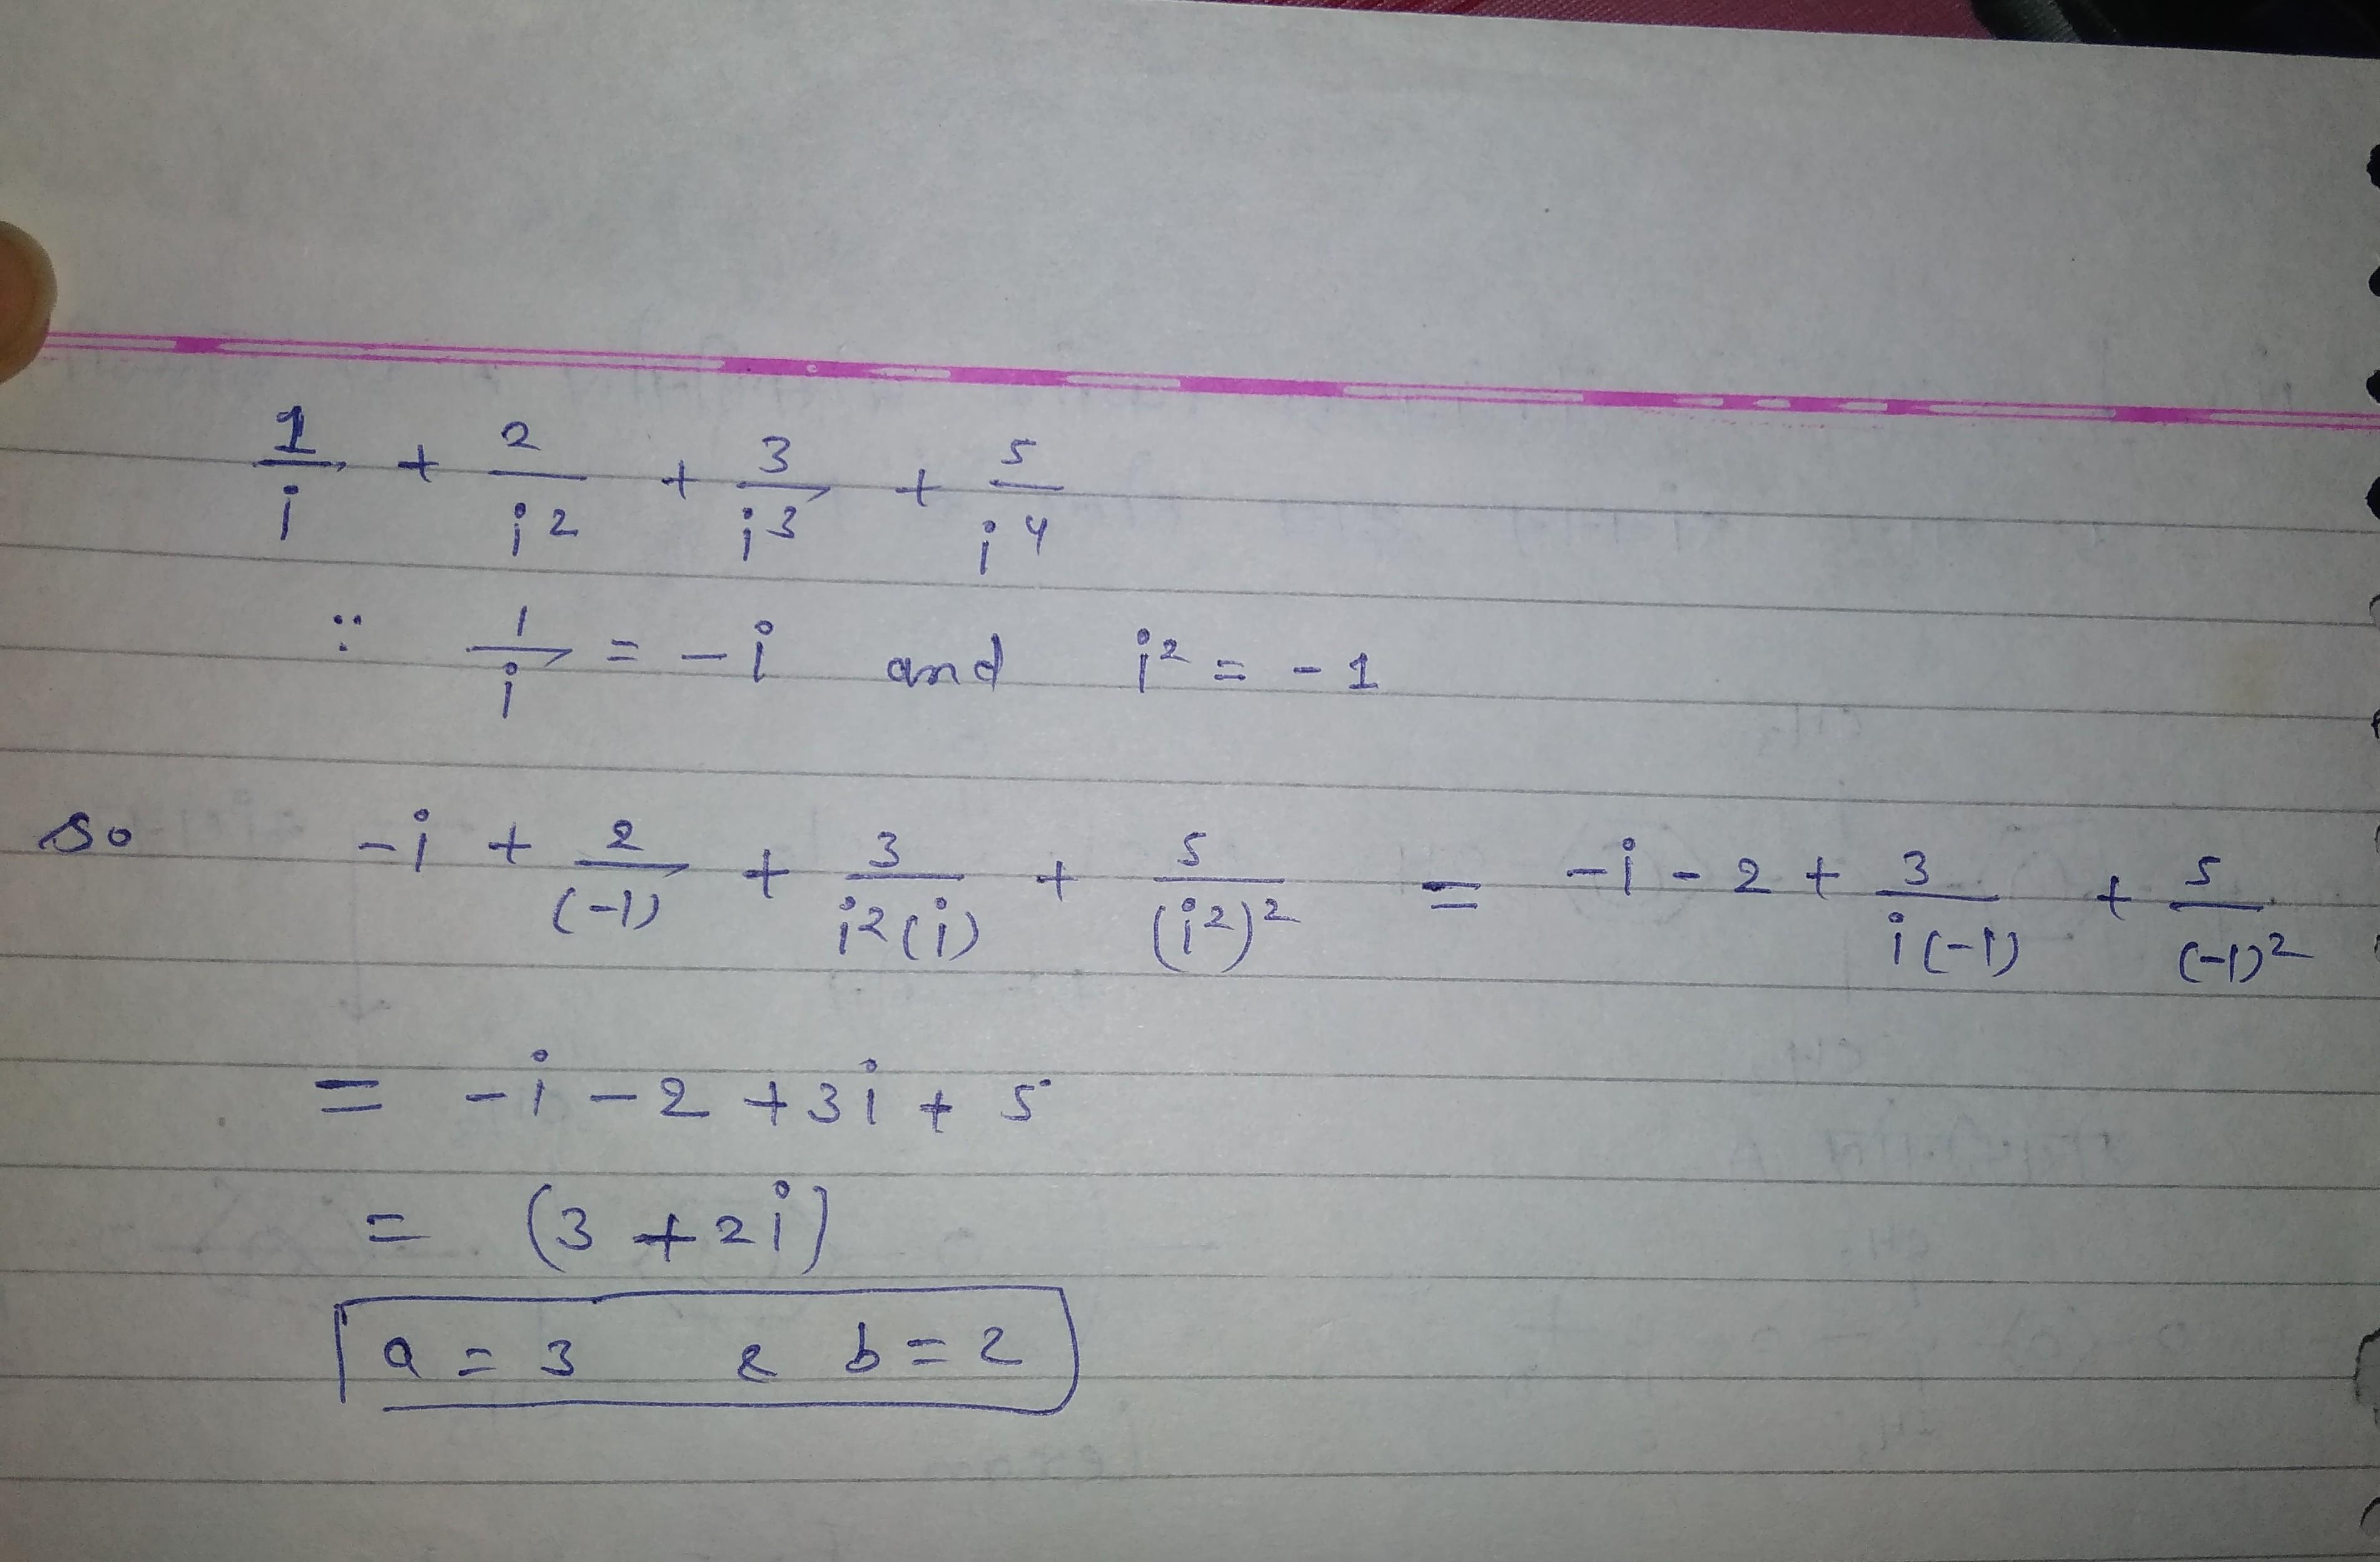 1/i + 2/i² + 3/i³ + 5/i⁴
∵ 1/i = -i and i² = -1
so -i + 2/(-1) + 3/i²(i) + 5/(i²)² = -i - 2 + 3/i(-1) + 5/(-1)²
= -i - 2 + 3i + 5
= (3 + 2i)
a = 3 & b = 2